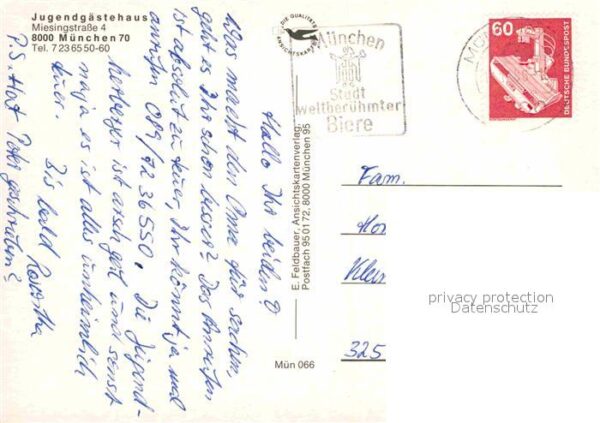 Jugendgästehaus
Miesingstraße 4
8000 München 70
Tel. 7 23 65 50-60
Hallo Ihr beiden
Was macht den Oma für sachen,
geht es Ihr schon besser? Das Anrufen
ist absolut zu teuer, Ihr könnt ja mal
anrufen 089/7236550. Die Jugend-
herberge ist arsch gut und sonst
naja es ist alles unheimlich
teuer.
Bis bald
P.S. Hat Peter geschrieben?
DIE QUALITÄTS
ANSICHTSKARTE
München
Stadt
weltberühmter
Biere
60
DEUTSCHE BUNDESPOST
E. Feldbauer, Ansichtskartenverlag,
Postfach 95 01 72, 8000 München 95
Mün 066
Fam.
Klein
325
privacy protection
Datenschutz